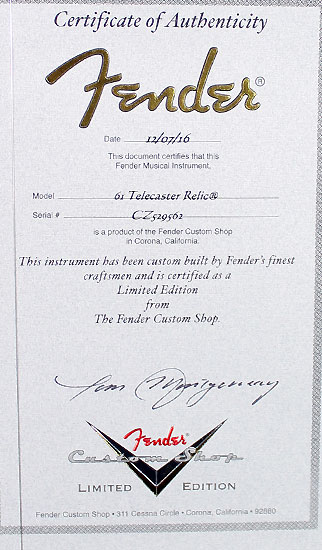 Certificate of Authenticity
Fender®
Date 12/07/16
This document certifies that this
Fender Musical Instrument,
Model 61 Telecaster Relic®
Serial # CZ529562
is a product of the Fender Custom Shop
in Corona, California.
This instrument has been custom built by Fender's finest
craftsmen and is certified as a
Limited Edition
from
The Fender Custom Shop.
Fender
Custom Shop
LIMITED EDITION
Fender Custom Shop • 311 Cessna Circle • Corona, California • 92880